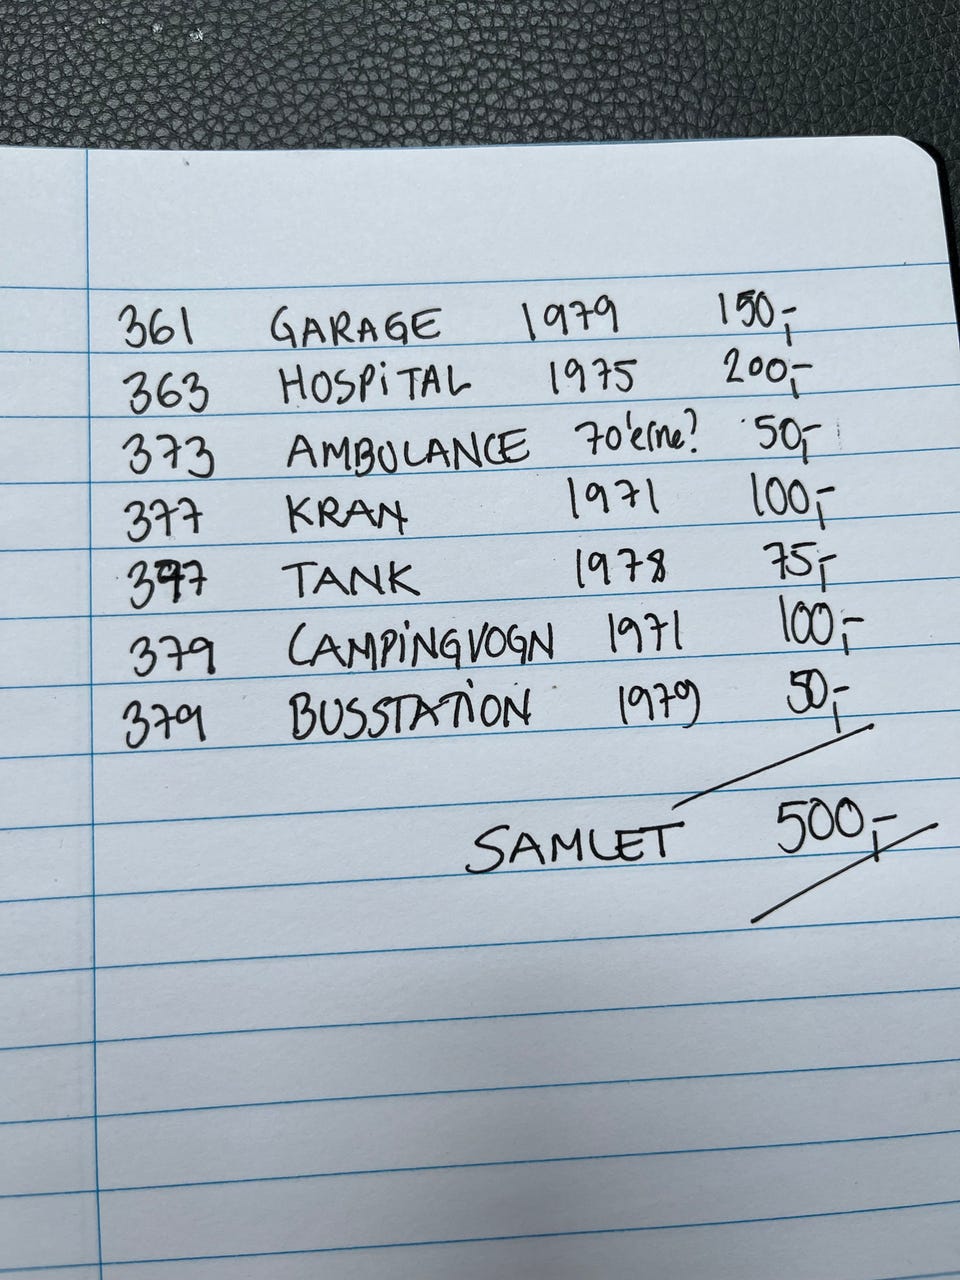 361 GARAGE 1979 150,-
363 HOSPiTAL 1975 200,-
373 AMBULANCE 70'erne? 50,-
377 KRAN 1971 100,-
397 TANK 1978 75,-
379 CAMPiNGVOGN 1971 100,-
379 BUSSTATiON 1979 50,-
SAMLET 500,-